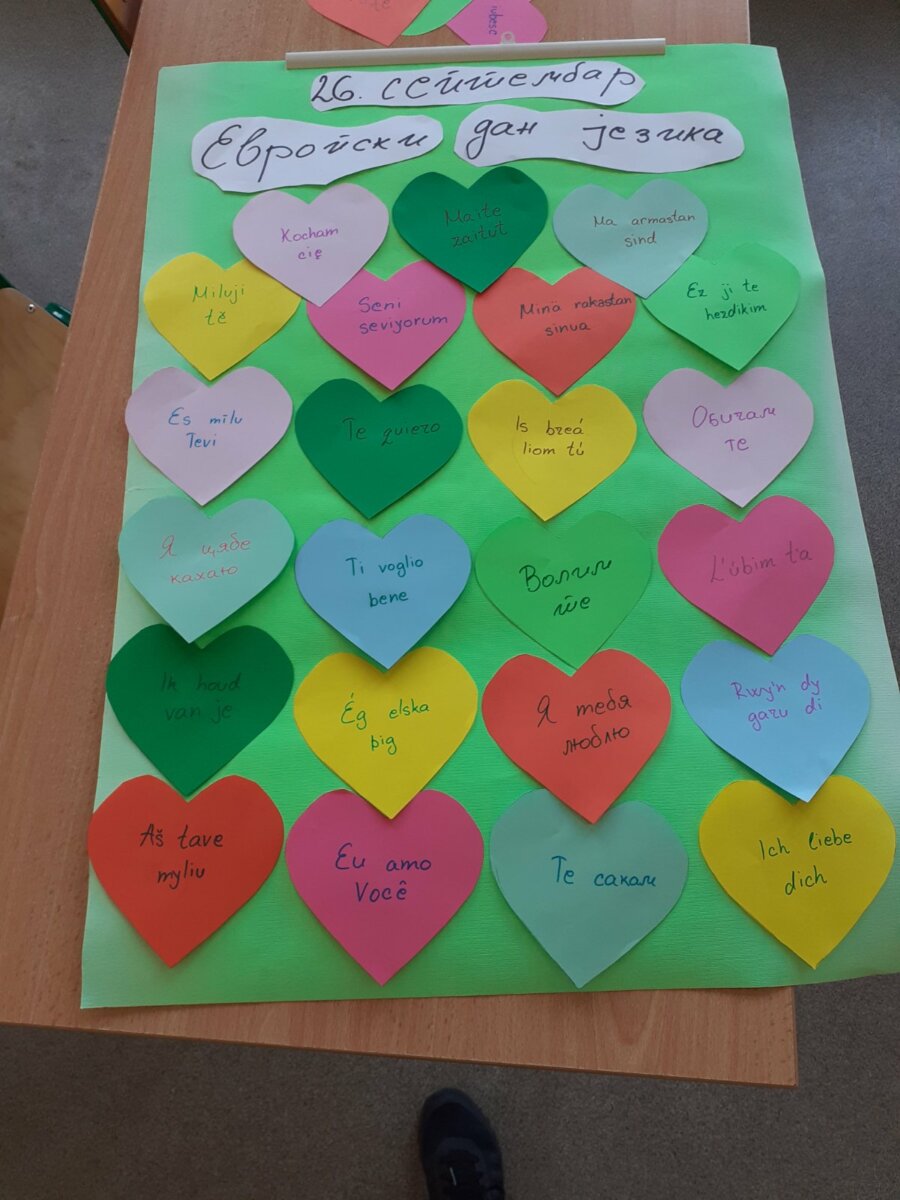 26. септембар
Европски дан језика
Kocham
cię
Maite
zaitut
Ma armastan
sind
Miluji
tě
Seni
seviyorum
Minä rakastan
sinua
Ez ji te
hezdikim
Es mīlu
Tevi
Te quiero
Is breá
liom tú
Обичам
те
Я цябе
кахаю
Ti voglio
bene
Волим
те
L'úbim ťa
Ik houd
van je
Ég elska
þig
Я тебя
люблю
Rwy'n dy
garu di
Aš tave
myliu
Eu amo
Você
Те сакам
Ich liebe
dich